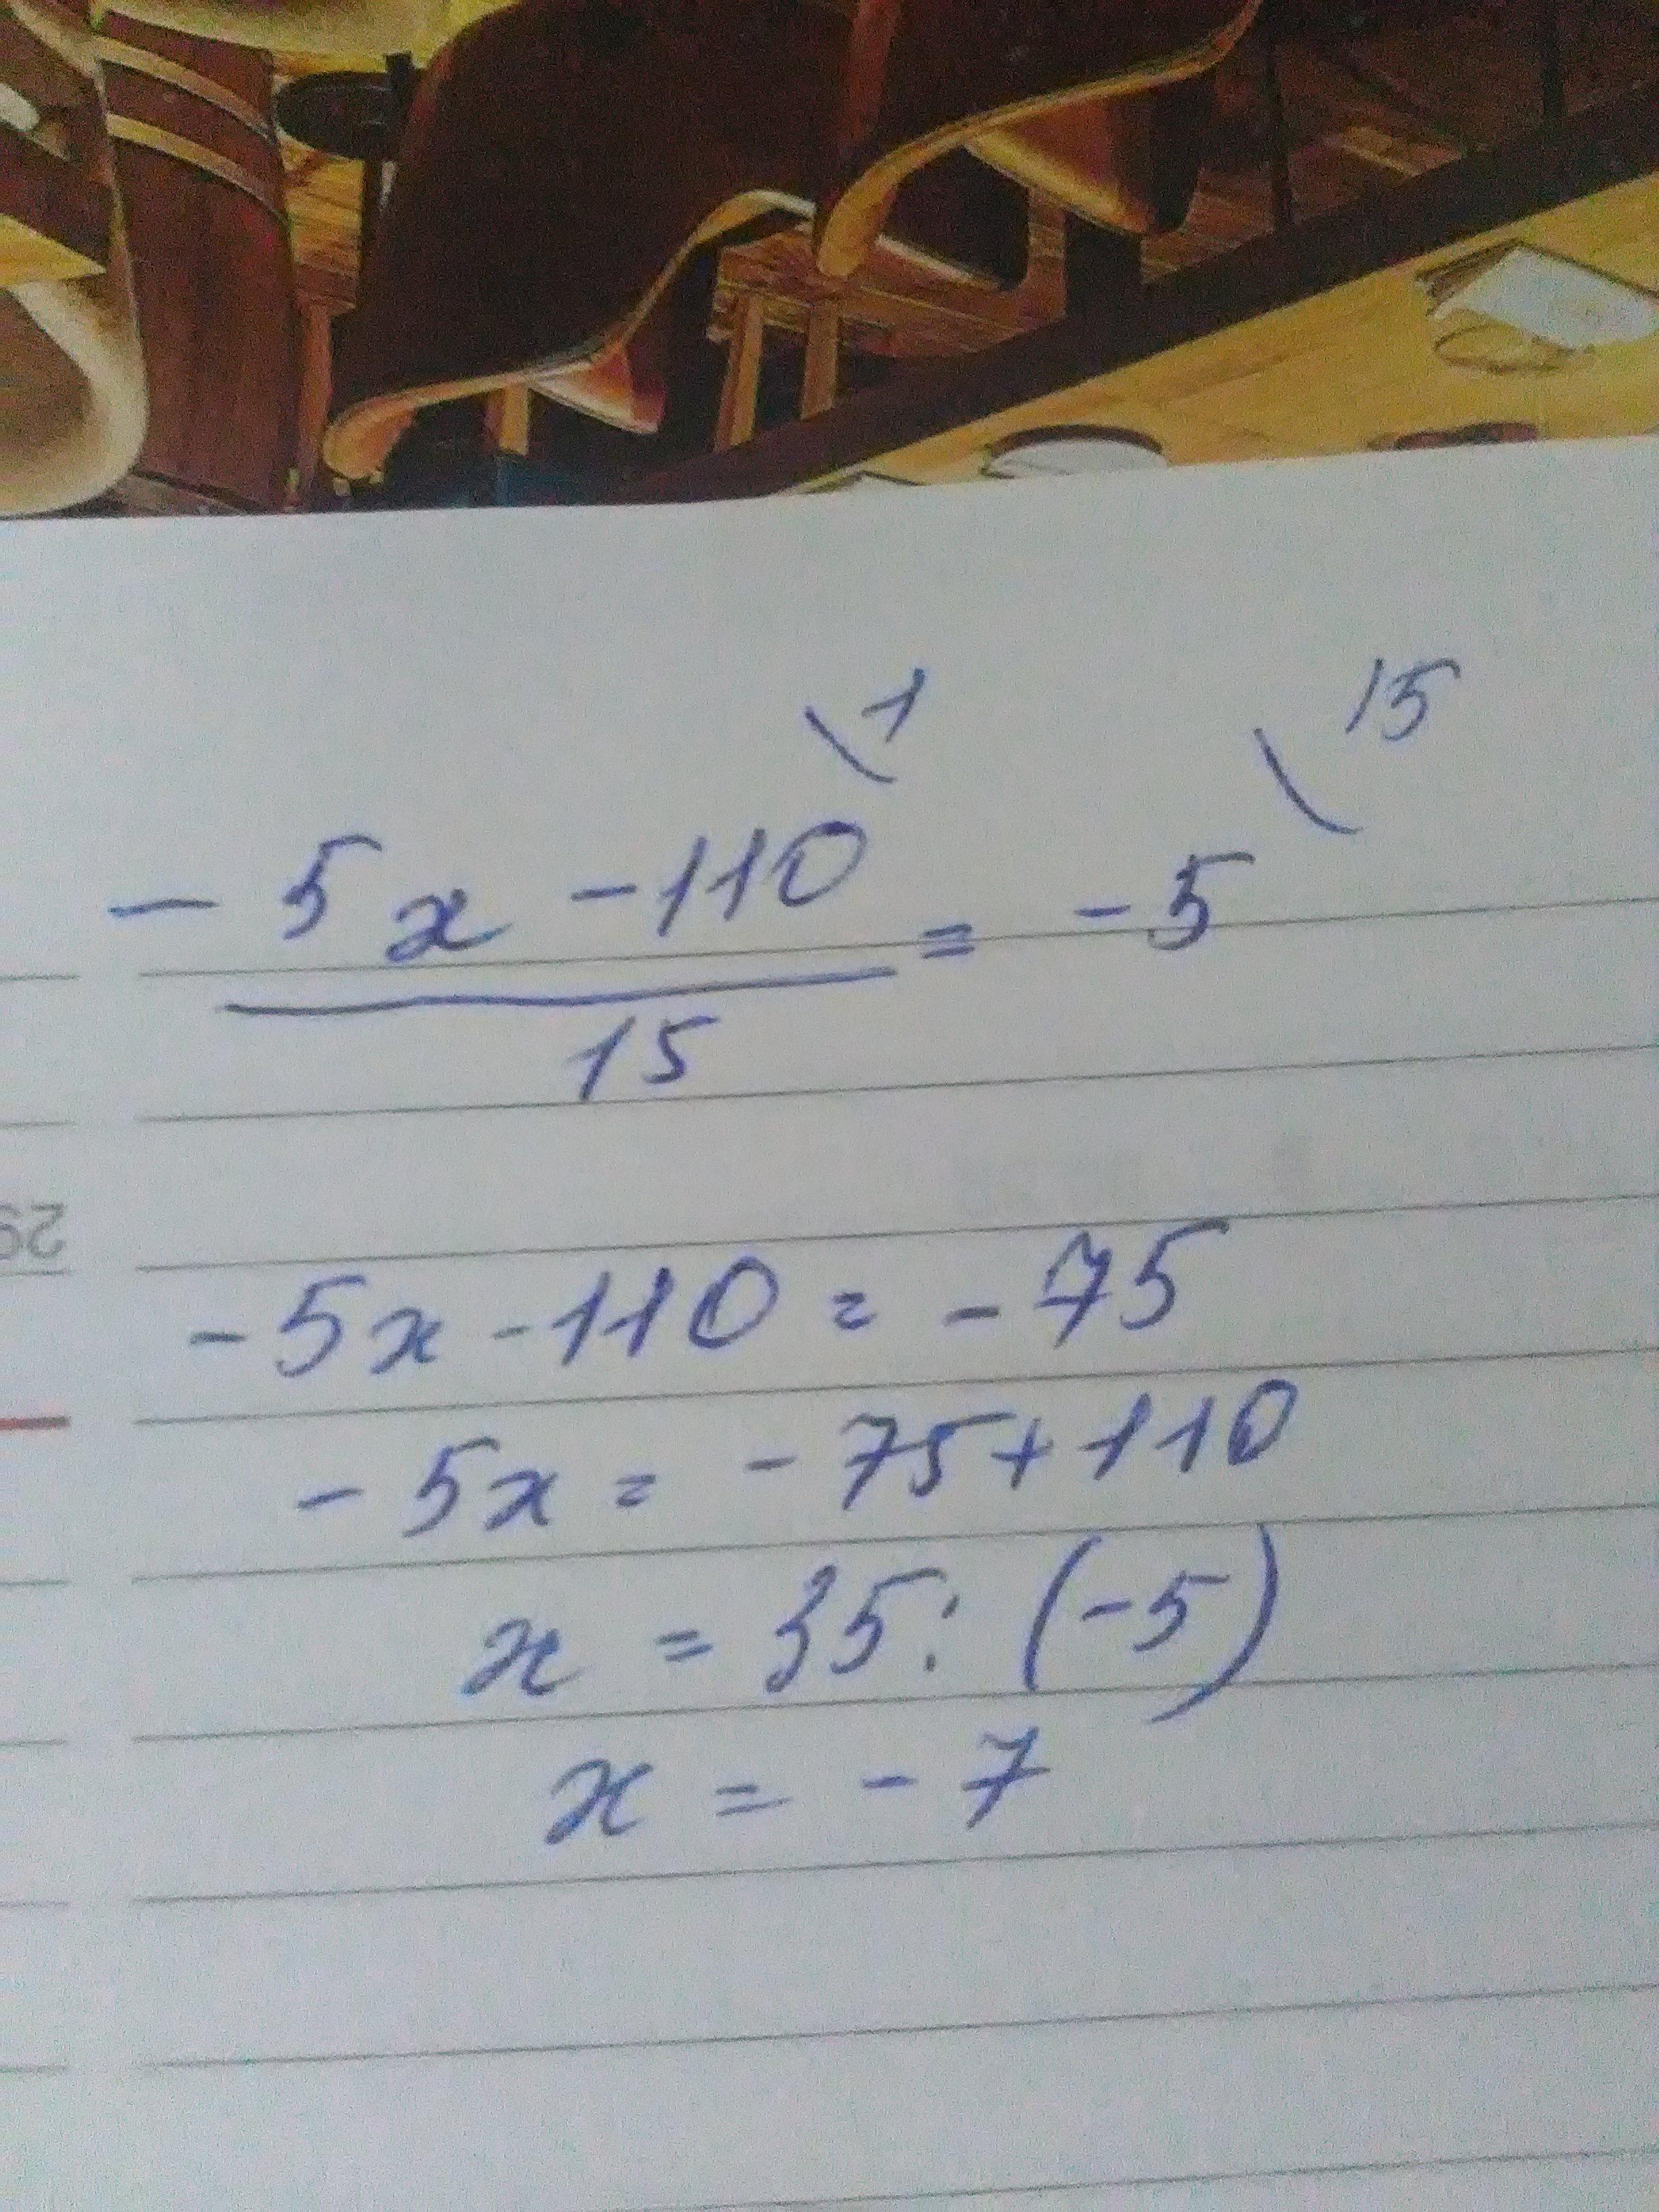 1 15
- 5x - 110 = - 5
15
29
- 5x - 110 = - 75
- 5x = - 75 + 110
x = 35 : (-5)
x = - 7